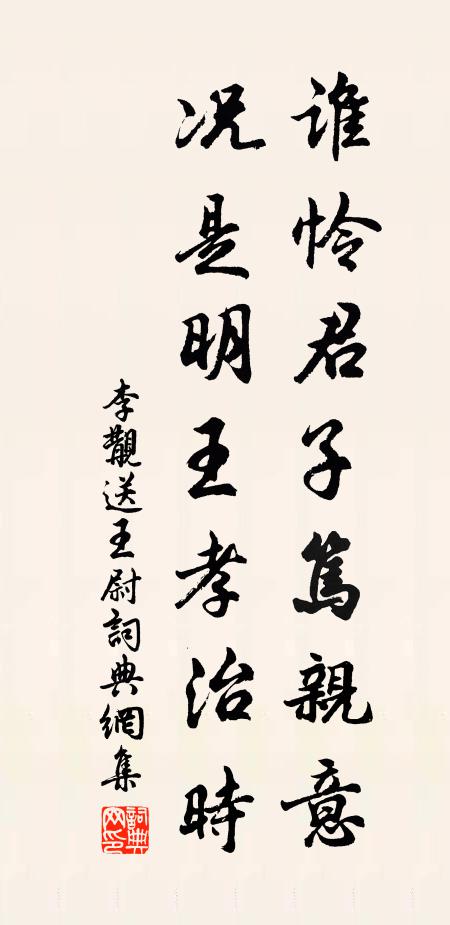 誰怜君子篤親意
况是明王孝治時
李覯送王尉詞典網集
詞典网印